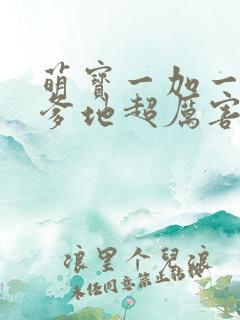 萌宝一加一
爹地超厉害
浪里个儿浪
未经同意禁止转载